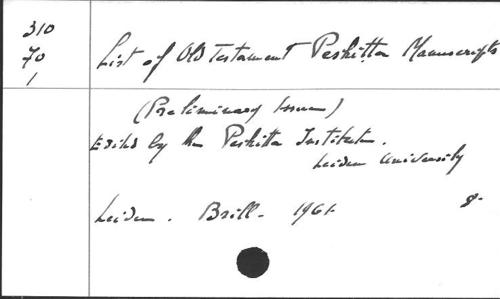 310
70
1
List of Old Testament Peshitta Manuscripts
(Preliminary Issue)
Edited by the Peshitta Institute.
Leiden University
Leiden. Brill. 1961
8.